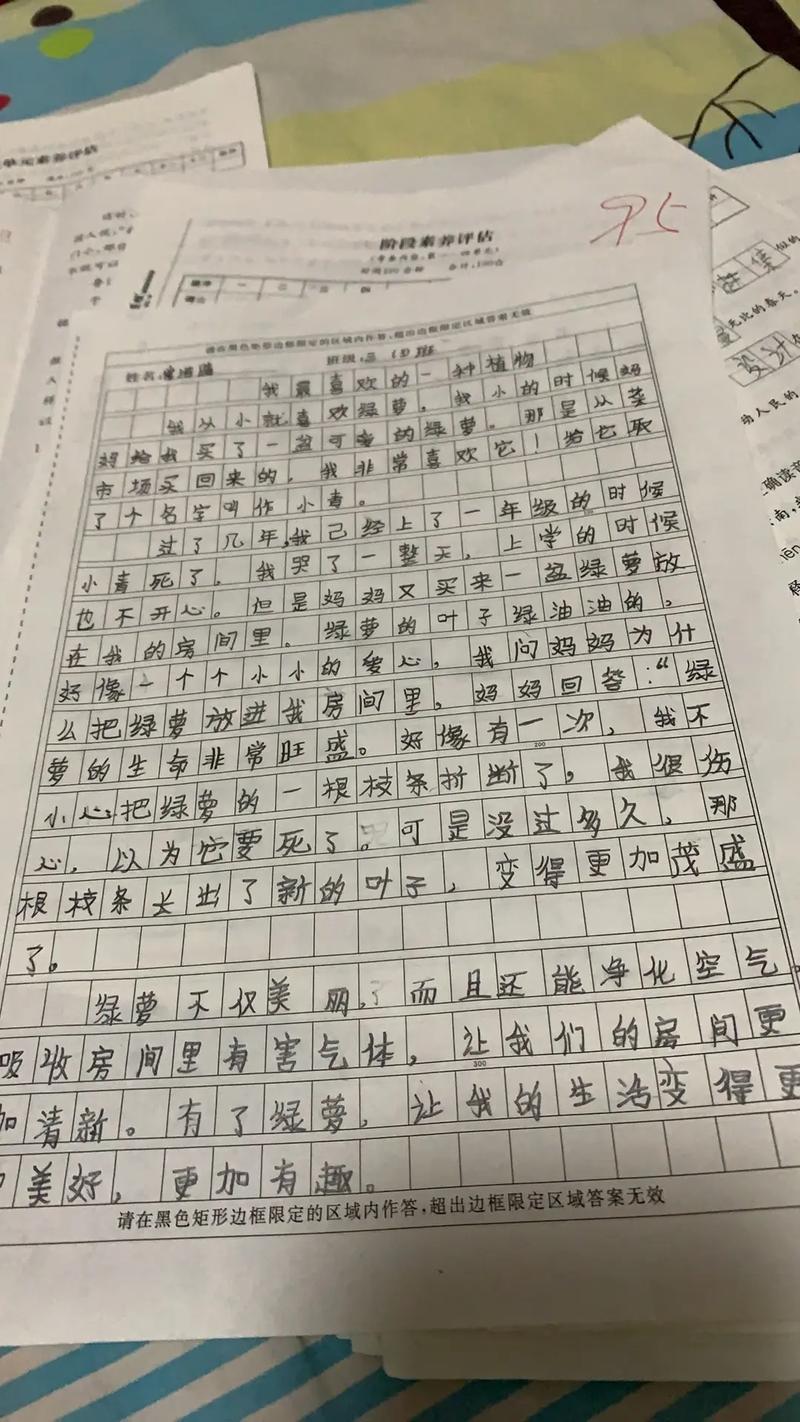 单元素养评估
95
阶段素养评估
请在黑色矩形边框限定的区域内作答,超出边框限定区域答案无效
姓名:
班级:三(1)班
我最喜欢的一种植物
我从小就喜欢绿萝,我小的时候妈
妈给我买了一盆可爱的绿萝。那是从菜
市场买回来的,我非常喜欢它!给它取
了个名字叫作小青。
过了几年,我已经上了一年级的时候
小青死了,我哭了一整天,上学的时候
也不开心。但是妈妈又买来一盆绿萝放
在我的房间里。绿萝的叶子绿油油的,
好像一个个小小的爱心,我问妈妈为什
么把绿萝放进我房间里,妈妈回答:“绿
萝的生命非常旺盛。好像有一次,我不
小心把绿萝的一根枝条折断了。我很伤
心,以为它要死了。可是没过多久,那
根枝条长出了新的叶子,变得更加茂盛
了。
绿萝不仅美丽,而且还能净化空气。
吸收房间里有害气体,让我们的房间更
加清新。有了绿萝,让我的生活变得更
美好,更加有趣。
请在黑色矩形边框限定的区域内作答,超出边框限定区域答案无效
200
300
设计
无比的春天。
动人民的
确读音